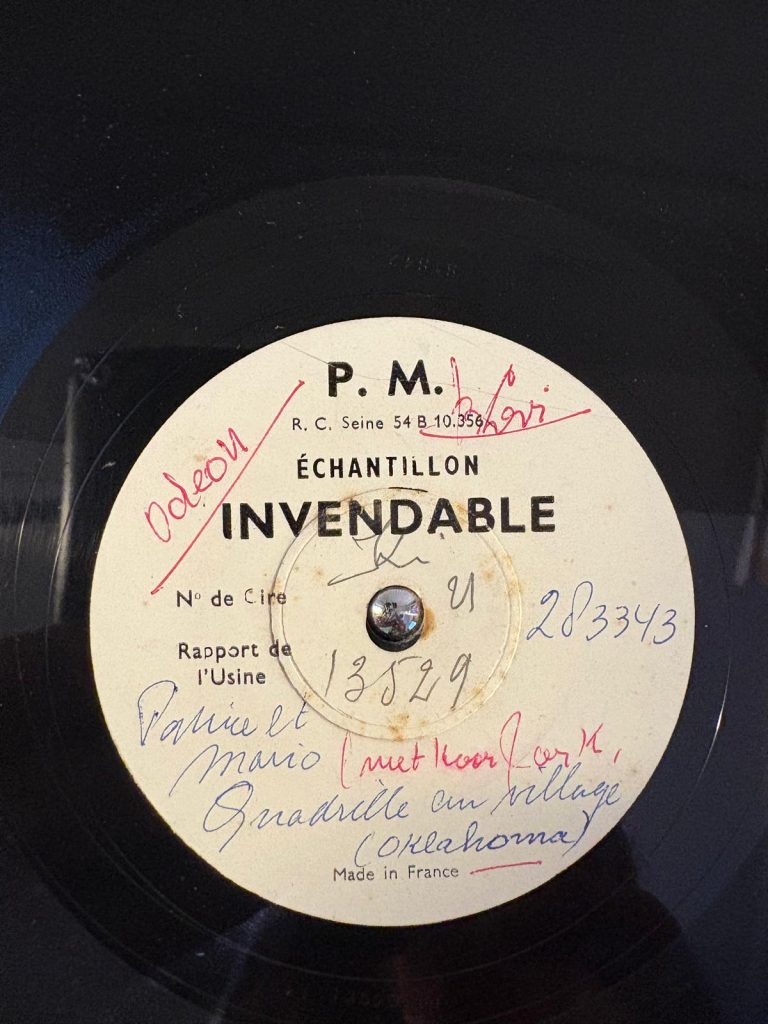 P. M.
R. C. Seine 54 B 10.356
Odeon
ÉCHANTILLON
INVENDABLE
Ki
N° de Cire
21
283343
Rapport de
l'Usine
13529
Patrice et
Mario (met koor) ork.
Quadrille au village
(Oklahoma)
Made in France